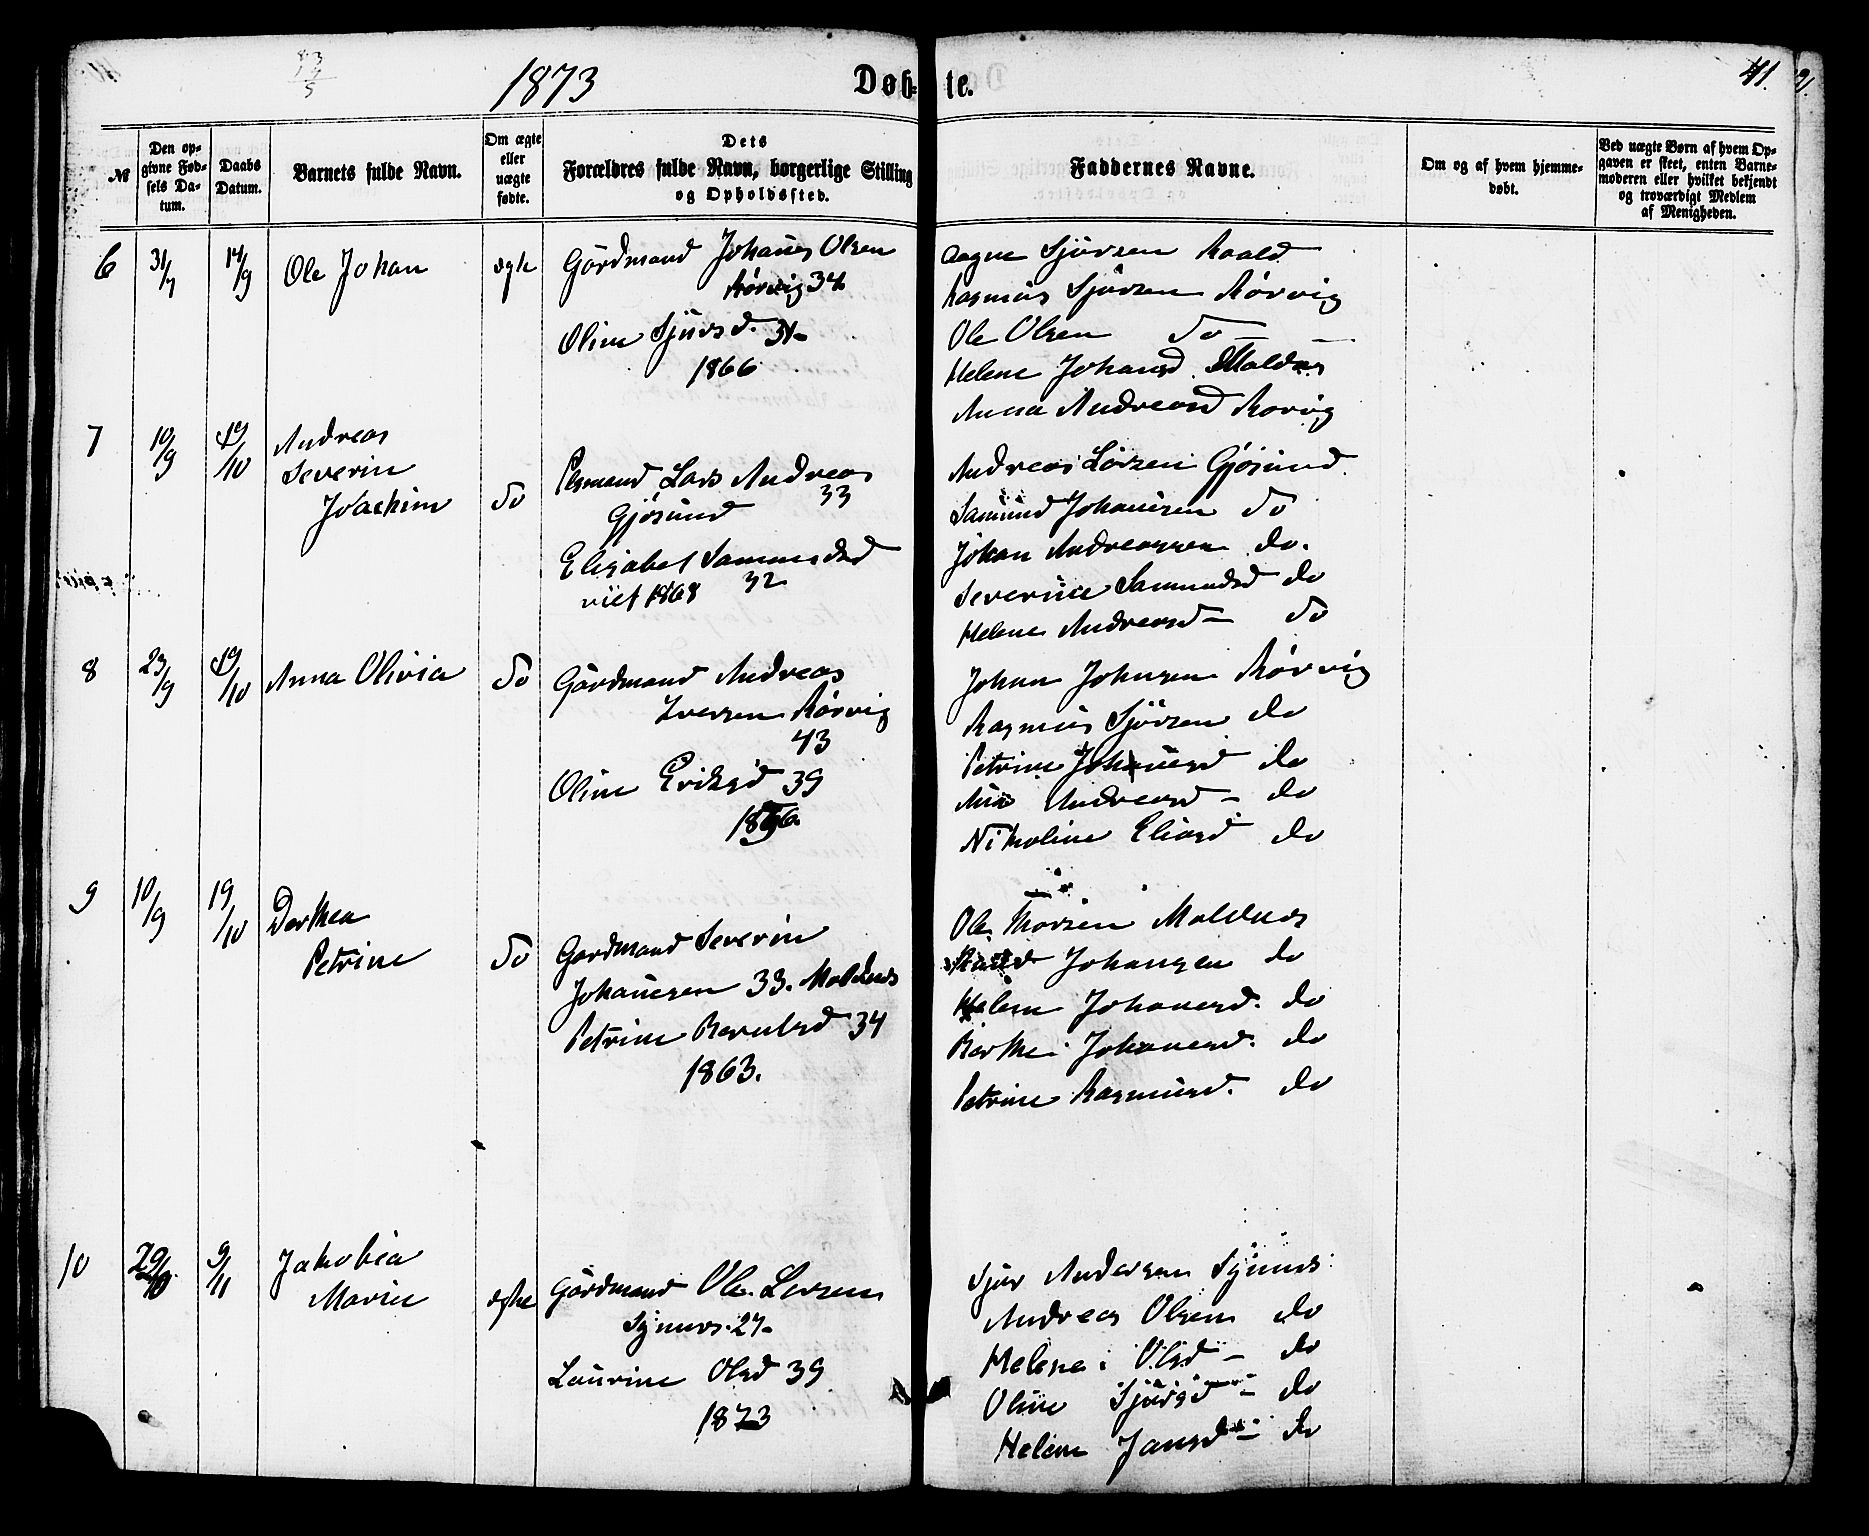 1873
Døb-te.
41.
№
Den opgivne Fødsels Datum.
Daabs Datum.
Barnets fulde Navn.
Om ægte eller uægte fødte.
Dets Forældres fulde Navn, borgerlige Stilling og Opholdssted.
Faddernes Navne.
Om og af hvem hjemmedøbt.
Ved uægte Børn af hvem Opgaven er skeet, enten Barnemoderen eller hvilket bekjendt og troværdigt Medlem af Menigheden.
6 31/7 14/9 Ole Johan ægte Gårdmand Johanes Olsen
Rørvig 34
Oline Sjursd. 31
1866
Aagne Sjursen Roald
Rasmus Sjursen Rørvig
Ole Olsen do
Helene Johansd. Moldnes
Anna Andreasd Rørvig
7 10/9 19/10 Andreas
Severin
Joachim do
Lars Andreas
Gjøsund 33
Elisabet Samundsd
viet 1868 32
Andreas Larsen Gjøsund
Samund Johansen do
Johan Andreassen do.
Severine Samundsd do
Helene Andreasd do
8 23/9 19/10 Anna Olivia do Gårdmand Andreas
Iversen Rørvig
43
Oline Eriksd 39
Johan Johnsen Rørvig
Rasmus Sjursen do
Petrine Johansd do
Andreasd do
Nikoline Eliasd do
9 10/9 19/10 Dorthea
Petrine do Gardmand Severin
Johansen 33. Moldnes
Petrine Berntsd 34
1863.
Ole Moldnes
Johansen do
Helene Johanesd. do
Berthe Johanesd. do
Petrine Rasmusd. do
10 29/10 9/11 Jakobia
Marie ægte Gårdmand Ole Larsen
Synnes 27
Laurine Olsd 39
1873
Sjur Andersen Synnes
Andreas Olsen do
Helene Olsd do
Oline Sjursd do
Helene Jansd do